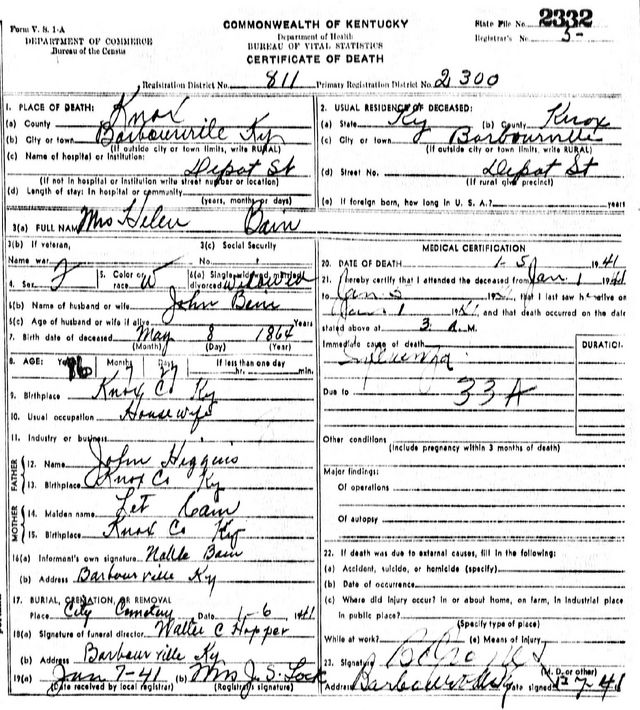 Form V. S. 1-A
DEPARTMENT OF COMMERCE
Bureau of the Census
COMMONWEALTH OF KENTUCKY
Department of Health
BUREAU OF VITAL STATISTICS
CERTIFICATE OF DEATH
State File No. 2332
Registrar's No. 5-
Registration District No. 811 Primary Registration District No. 2300
1. PLACE OF DEATH:
(a) County Knox
(b) City or town Barbourville Ky
(If outside city or town limits, write RURAL)
(c) Name of hospital or institution:
Depot St
(If not in hospital or institution write street number or location)
(d) Length of stay: In hospital or community
(years, months or days)
2. USUAL RESIDENCE OF DECEASED:
(a) State Ky (b) County Knox
(c) City or town Barbourville
(If outside city or town limits, write RURAL)
(d) Street No. Depot St
(If rural give precinct)
(e) If foreign born, how long in U. S. A.? years
3(a) FULL NAME Mrs Helen Bain
3(b) If veteran, 3(c) Social Security
Name war No.
4. Sex F 5. Color or race W 6(a) Single, widowed, married, divorced Widowed
6(b) Name of husband or wife John Bain
6(c) Age of husband or wife if alive Years
7. Birth date of deceased May 8 1864
(Month) (Day) (Year)
8. AGE: Years 76 Months 7 Days 27 If less than one day
hr. min.
9. Birthplace Knox Co Ky
10. Usual occupation Housewife
11. Industry or business
FATHER
12. Name John Higgins
13. Birthplace Knox Co Ky
MOTHER
14. Maiden name Let Cain
15. Birthplace Knox Co Ky
16(a) Informant's own signature Bain
(b) Address Barbourville Ky
17. BURIAL, CREMATION, OR REMOVAL
Place City Cemetery Date 1-6 1941
18(a) Signature of funeral director Walter C Hopper
(b) Address Barbourville Ky
19(a) Jan 7-41 (b) Mrs J. S. Lock
(Date received by local registrar) (Registrar's signature)
MEDICAL CERTIFICATION
20. DATE OF DEATH 1-5 1941
21. I hereby certify that I attended the deceased from Jan 1 1941
to Jan 5 that I last saw h alive on
Jan 1 and that death occurred on the date
stated above at 3 A. M.
Immediate cause of death DURATION
Influenza
Due to 33A
Other conditions
(Include pregnancy within 3 months of death)
Major findings:
Of operations
Of autopsy
22. If death was due to external causes, fill in the following:
(a) Accident, suicide, or homicide (specify)
(b) Date of occurrence
(c) Where did injury occur? In or about home, on farm, in industrial place
in public place?
(Specify type of place)
While at work? (e) Means of injury
23. Signature
(M. D. or other)
Address Barbourville Ky Date signed 7-41